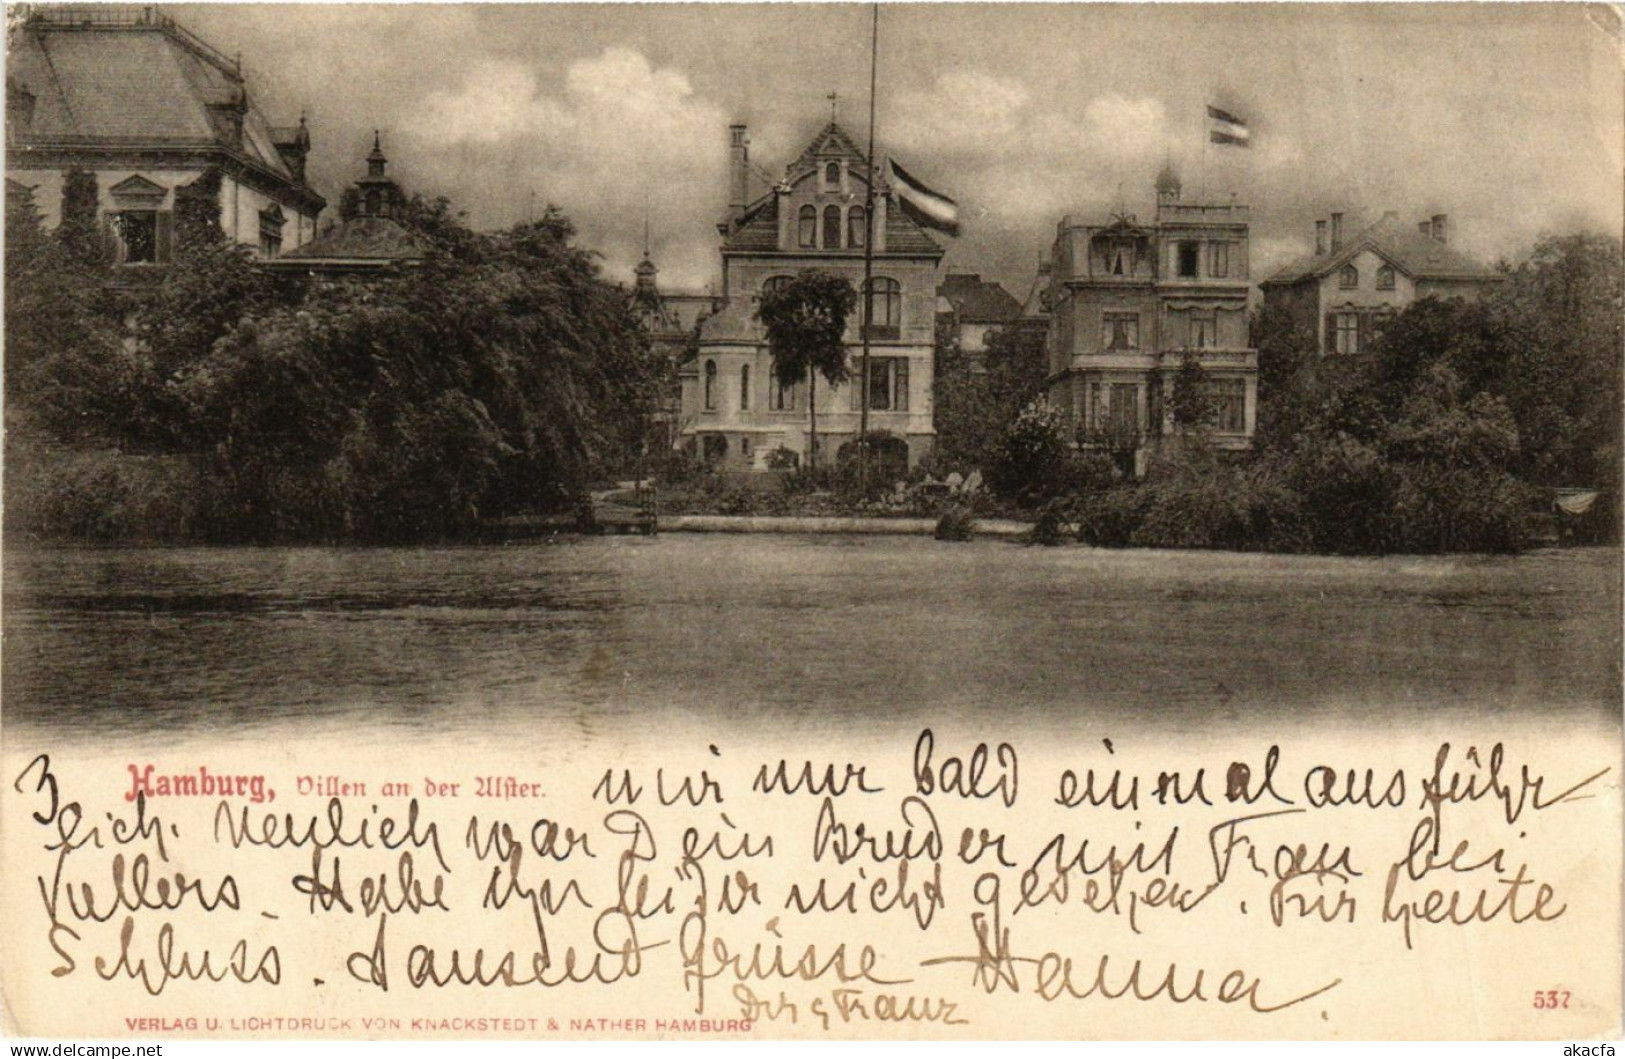 3
Hamburg, Villen an der Alster.
mir nur bald einmal ausführ-
lich. Neulich war Dein Bruder mit Frau bei
Vullers. Habe ihn leider nicht gesehen. Für heute
Schluss. Tausend Grüsse — Hanna.
Dir & Franz
VERLAG U. LICHTDRUCK VON KNACKSTEDT & NÄTHER HAMBURG
537
akpool-shop / Hamburg, Villen an der Alster
akacfa